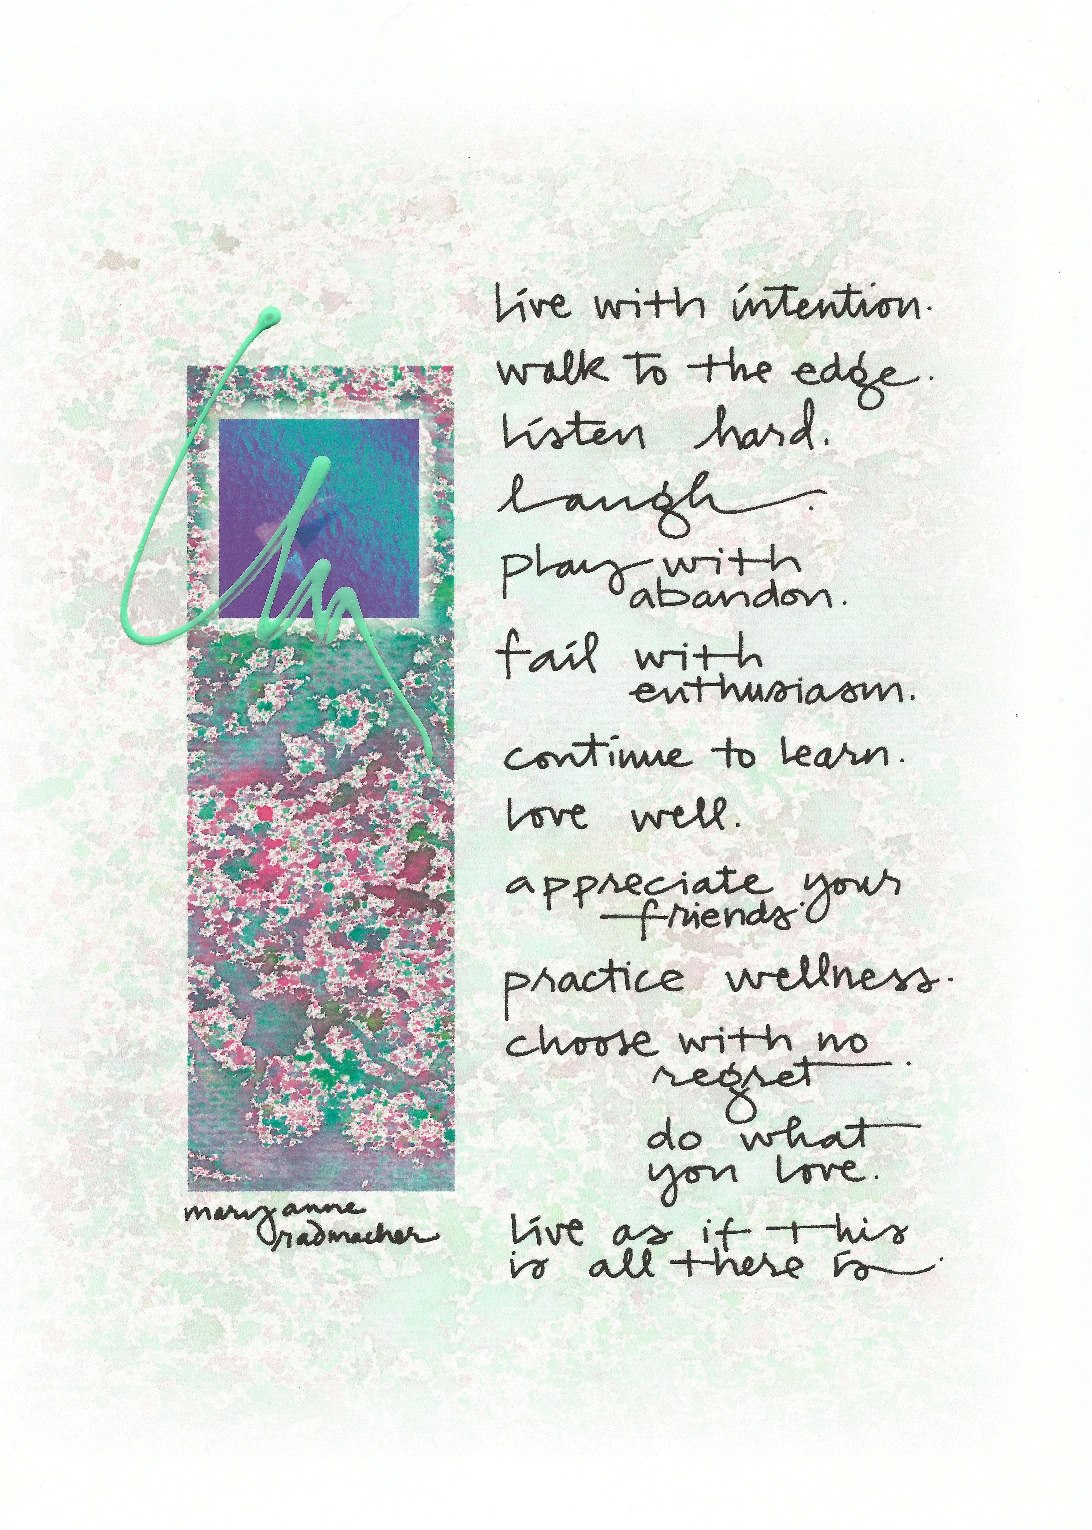 live with intention.
walk to the edge.
listen hard.
laugh.
play with
abandon.
fail with
enthusiasm.
continue to learn.
love well.
appreciate your
friends.
practice wellness.
choose with no
regret.
do what
you love.
live as if this
is all there is.
maryanne
radmacher